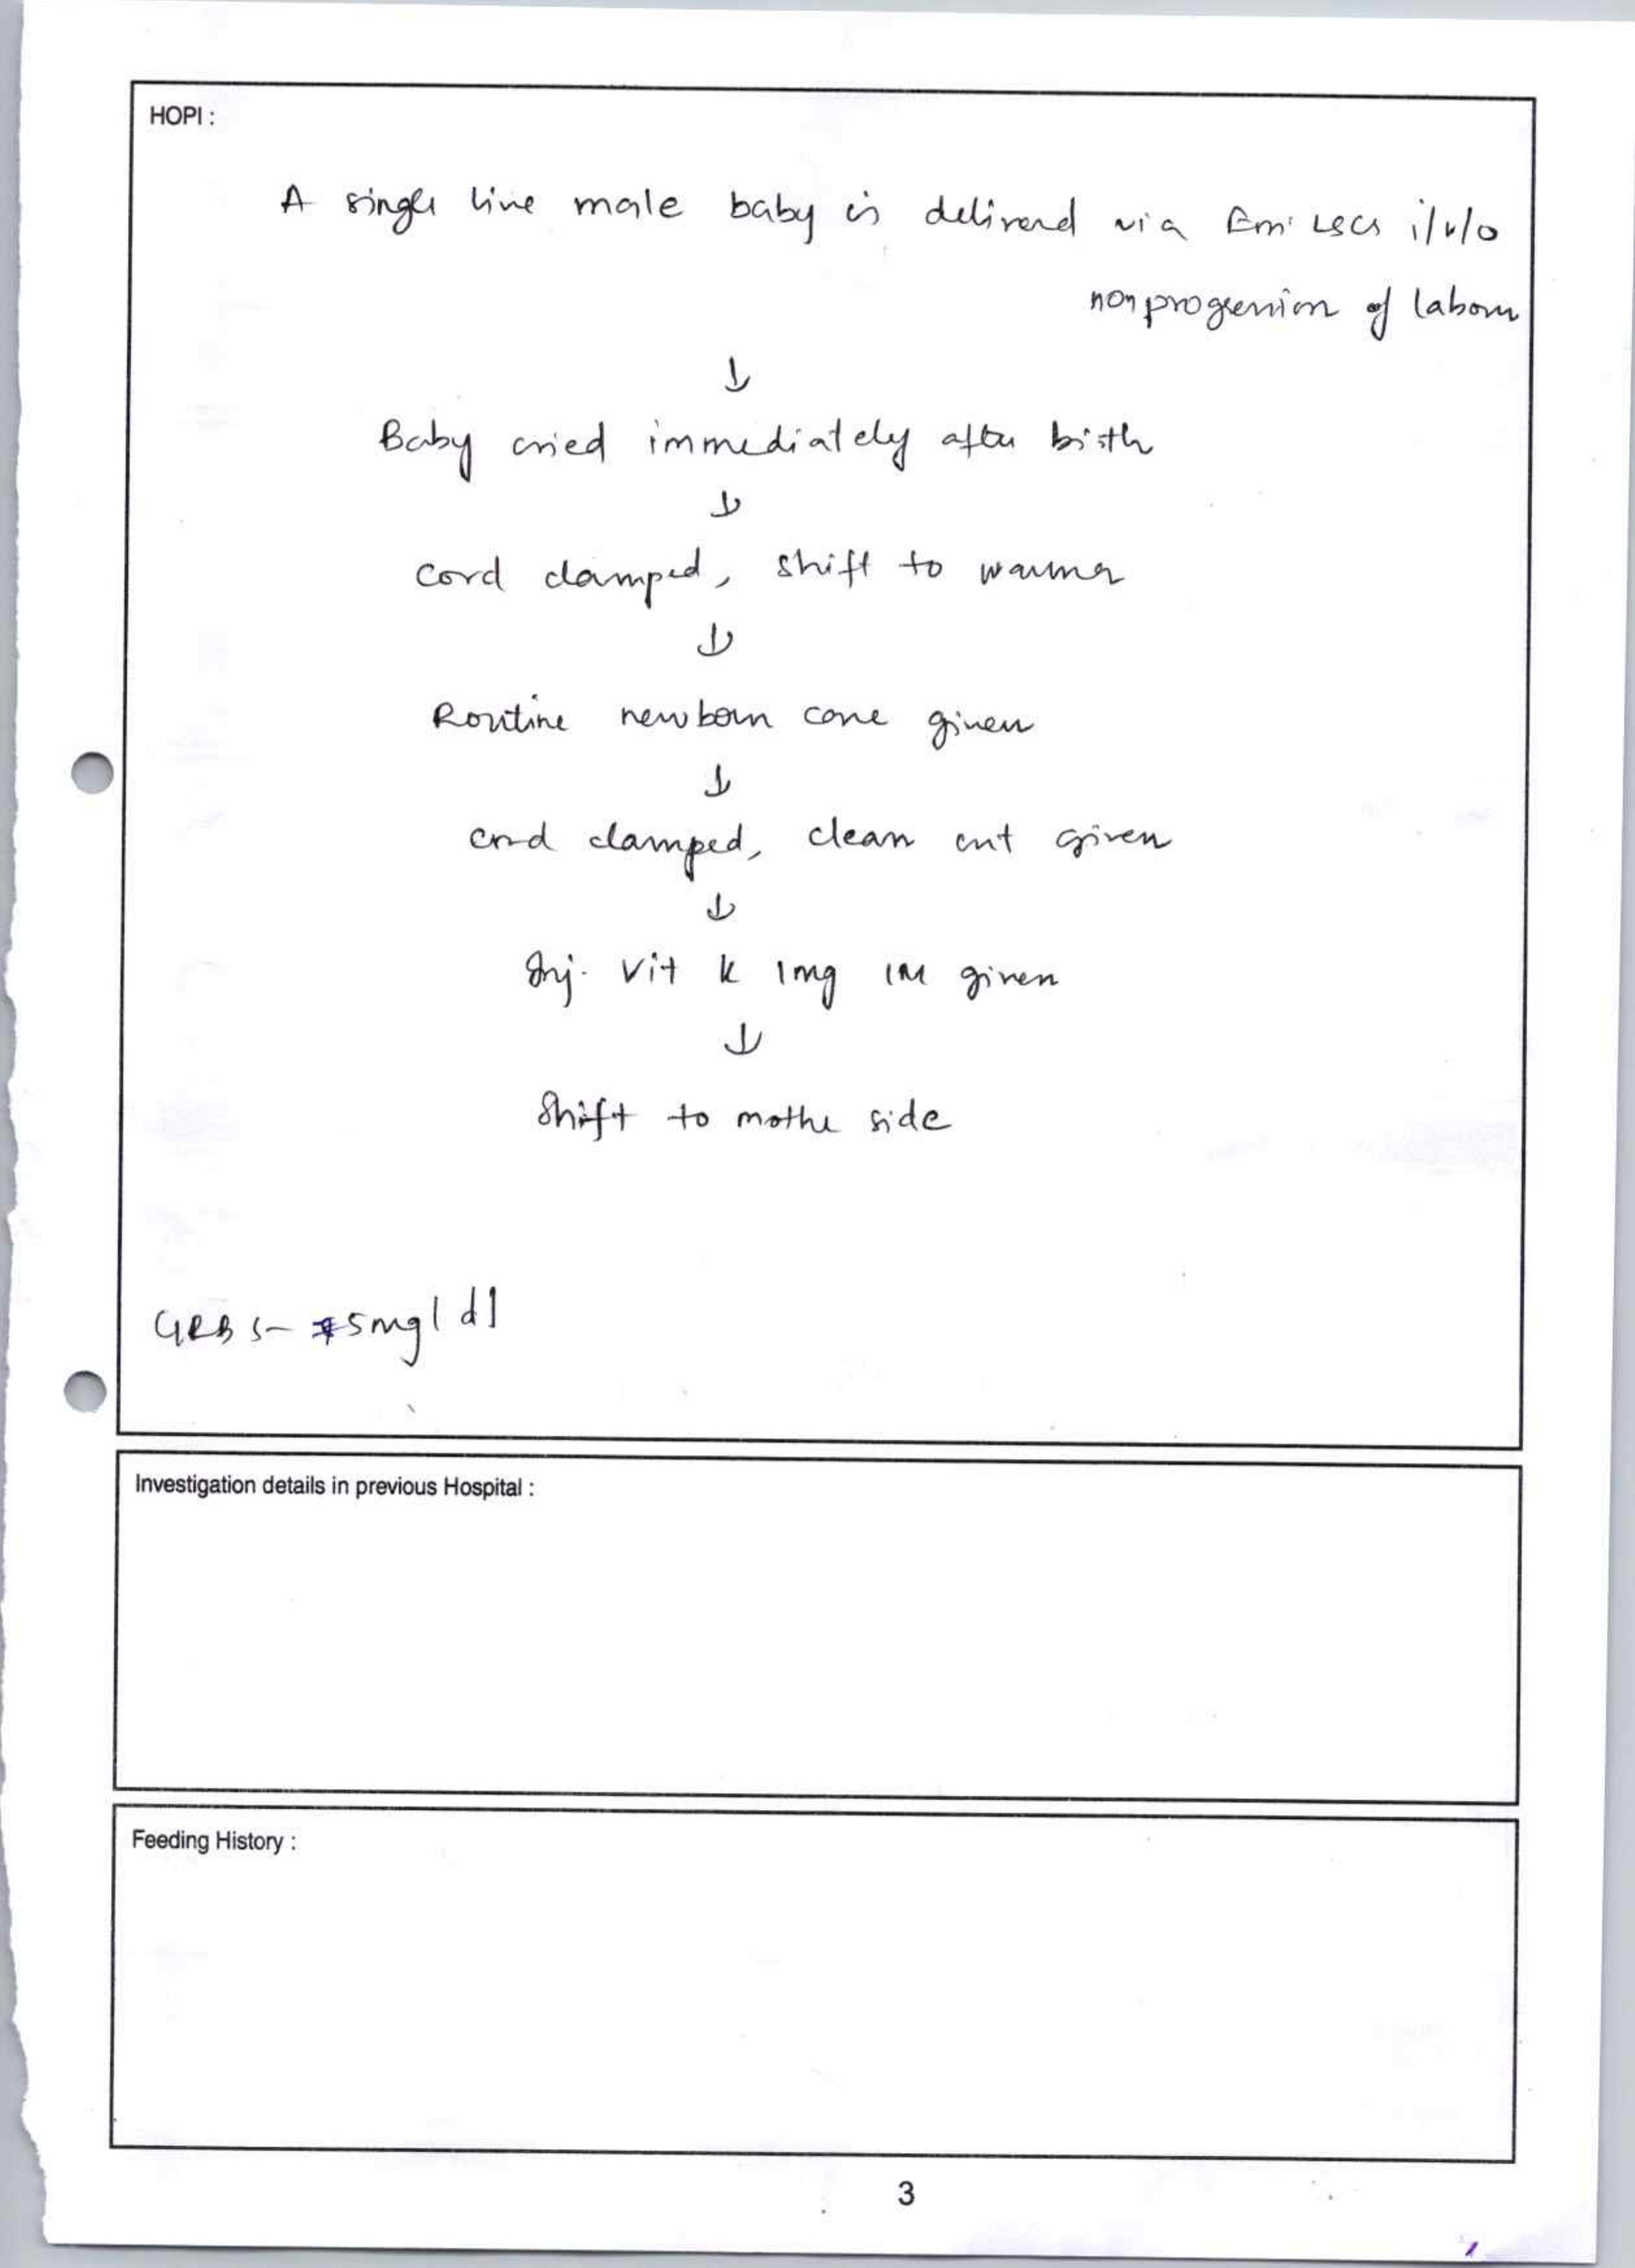 HOPI :
A single live male baby is delivered via Em. LSCS i/v/o
non progression of labour
↓
Baby cried immediately after birth
↓
Cord clamped, shift to warmer
↓
Routine newborn care given
↓
Cord clamped, clean cut given
↓
Inj. Vit K 1mg IM given
↓
Shift to mothe side
GRBS - 5mg/dl
Investigation details in previous Hospital :
Feeding History :
3